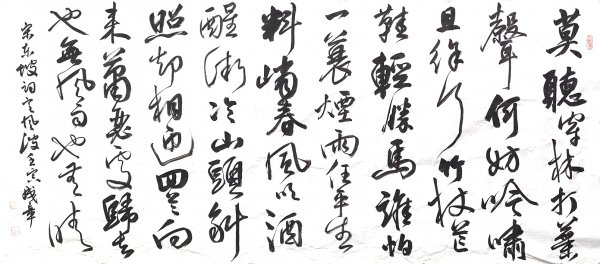 莫聽穿林打葉
聲何妨吟嘯
且徐行竹杖芒
鞋輕勝馬誰怕
一蓑煙雨任平生
料峭春風吹酒
醒微冷山頭斜
照却相迎回首向
來蕭瑟處歸去
也無風雨也無晴
宋东坡词定風波壬寅